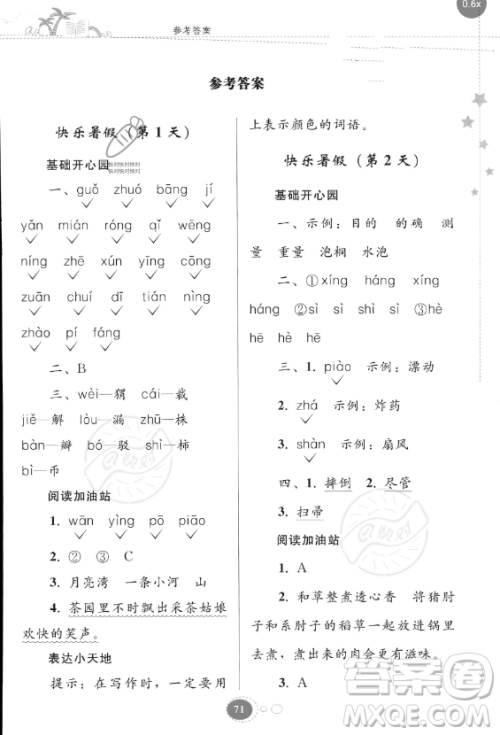 参考答案
0.6x
参考答案
快乐暑假（第1天）
基础开心园
一、guǒ zhuó bāng jí
yǎn mián róng qǐ wēng
níng zhē xún yīng cōng
zuān chuí dī tián níng
zhào pí fáng
二、B
三、wèi—猬 cái—裁
jiě—解 lòu—漏 zhū—株
bàn—瓣 bó—驳 shì—柿
bì—币
阅读加油站
1. wān yìng pō piāo
2. ② ③ C
3. 月亮湾 一条小河 山
4. 茶园里不时飘出采茶姑娘
欢快的笑声。
表达小天地
提示：在写作时，一定要用
上表示颜色的词语。
快乐暑假（第2天）
基础开心园
一、示例：目的 的确 测
量 重量 泡桐 水泡
二、①xíng háng xíng
háng ②sì sì shì sì ③hè
hē hè hē
三、1. piào 示例：漂动
2. zhá 示例：炸药
3. shàn 示例：扇风
四、1. 摔倒 2. 尽管
3. 扫帚
阅读加油站
1. A
2. 和草整煮透心香 将猪肘
子和系肘子的稻草一起放进锅里
去煮，煮出来的肉会更有滋味。
3. A
71
答案圈
MXQE.COM